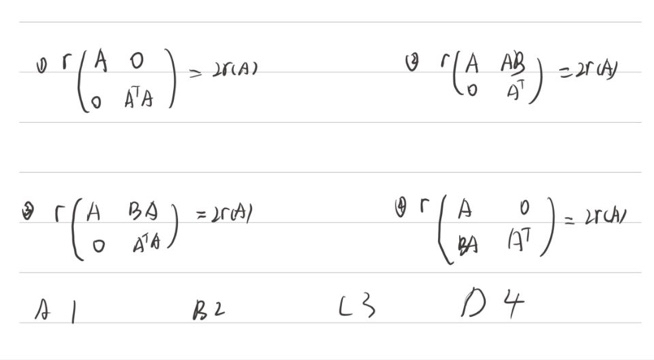 ① r(A 0
0 AᵀA) = 2r(A)
② r(A AB
0 Aᵀ) = 2r(A)
③ r(A BA
0 AᵀA) = 2r(A)
④ r(A 0
BA Aᵀ) = 2r(A)
A 1 B 2 C 3 D 4